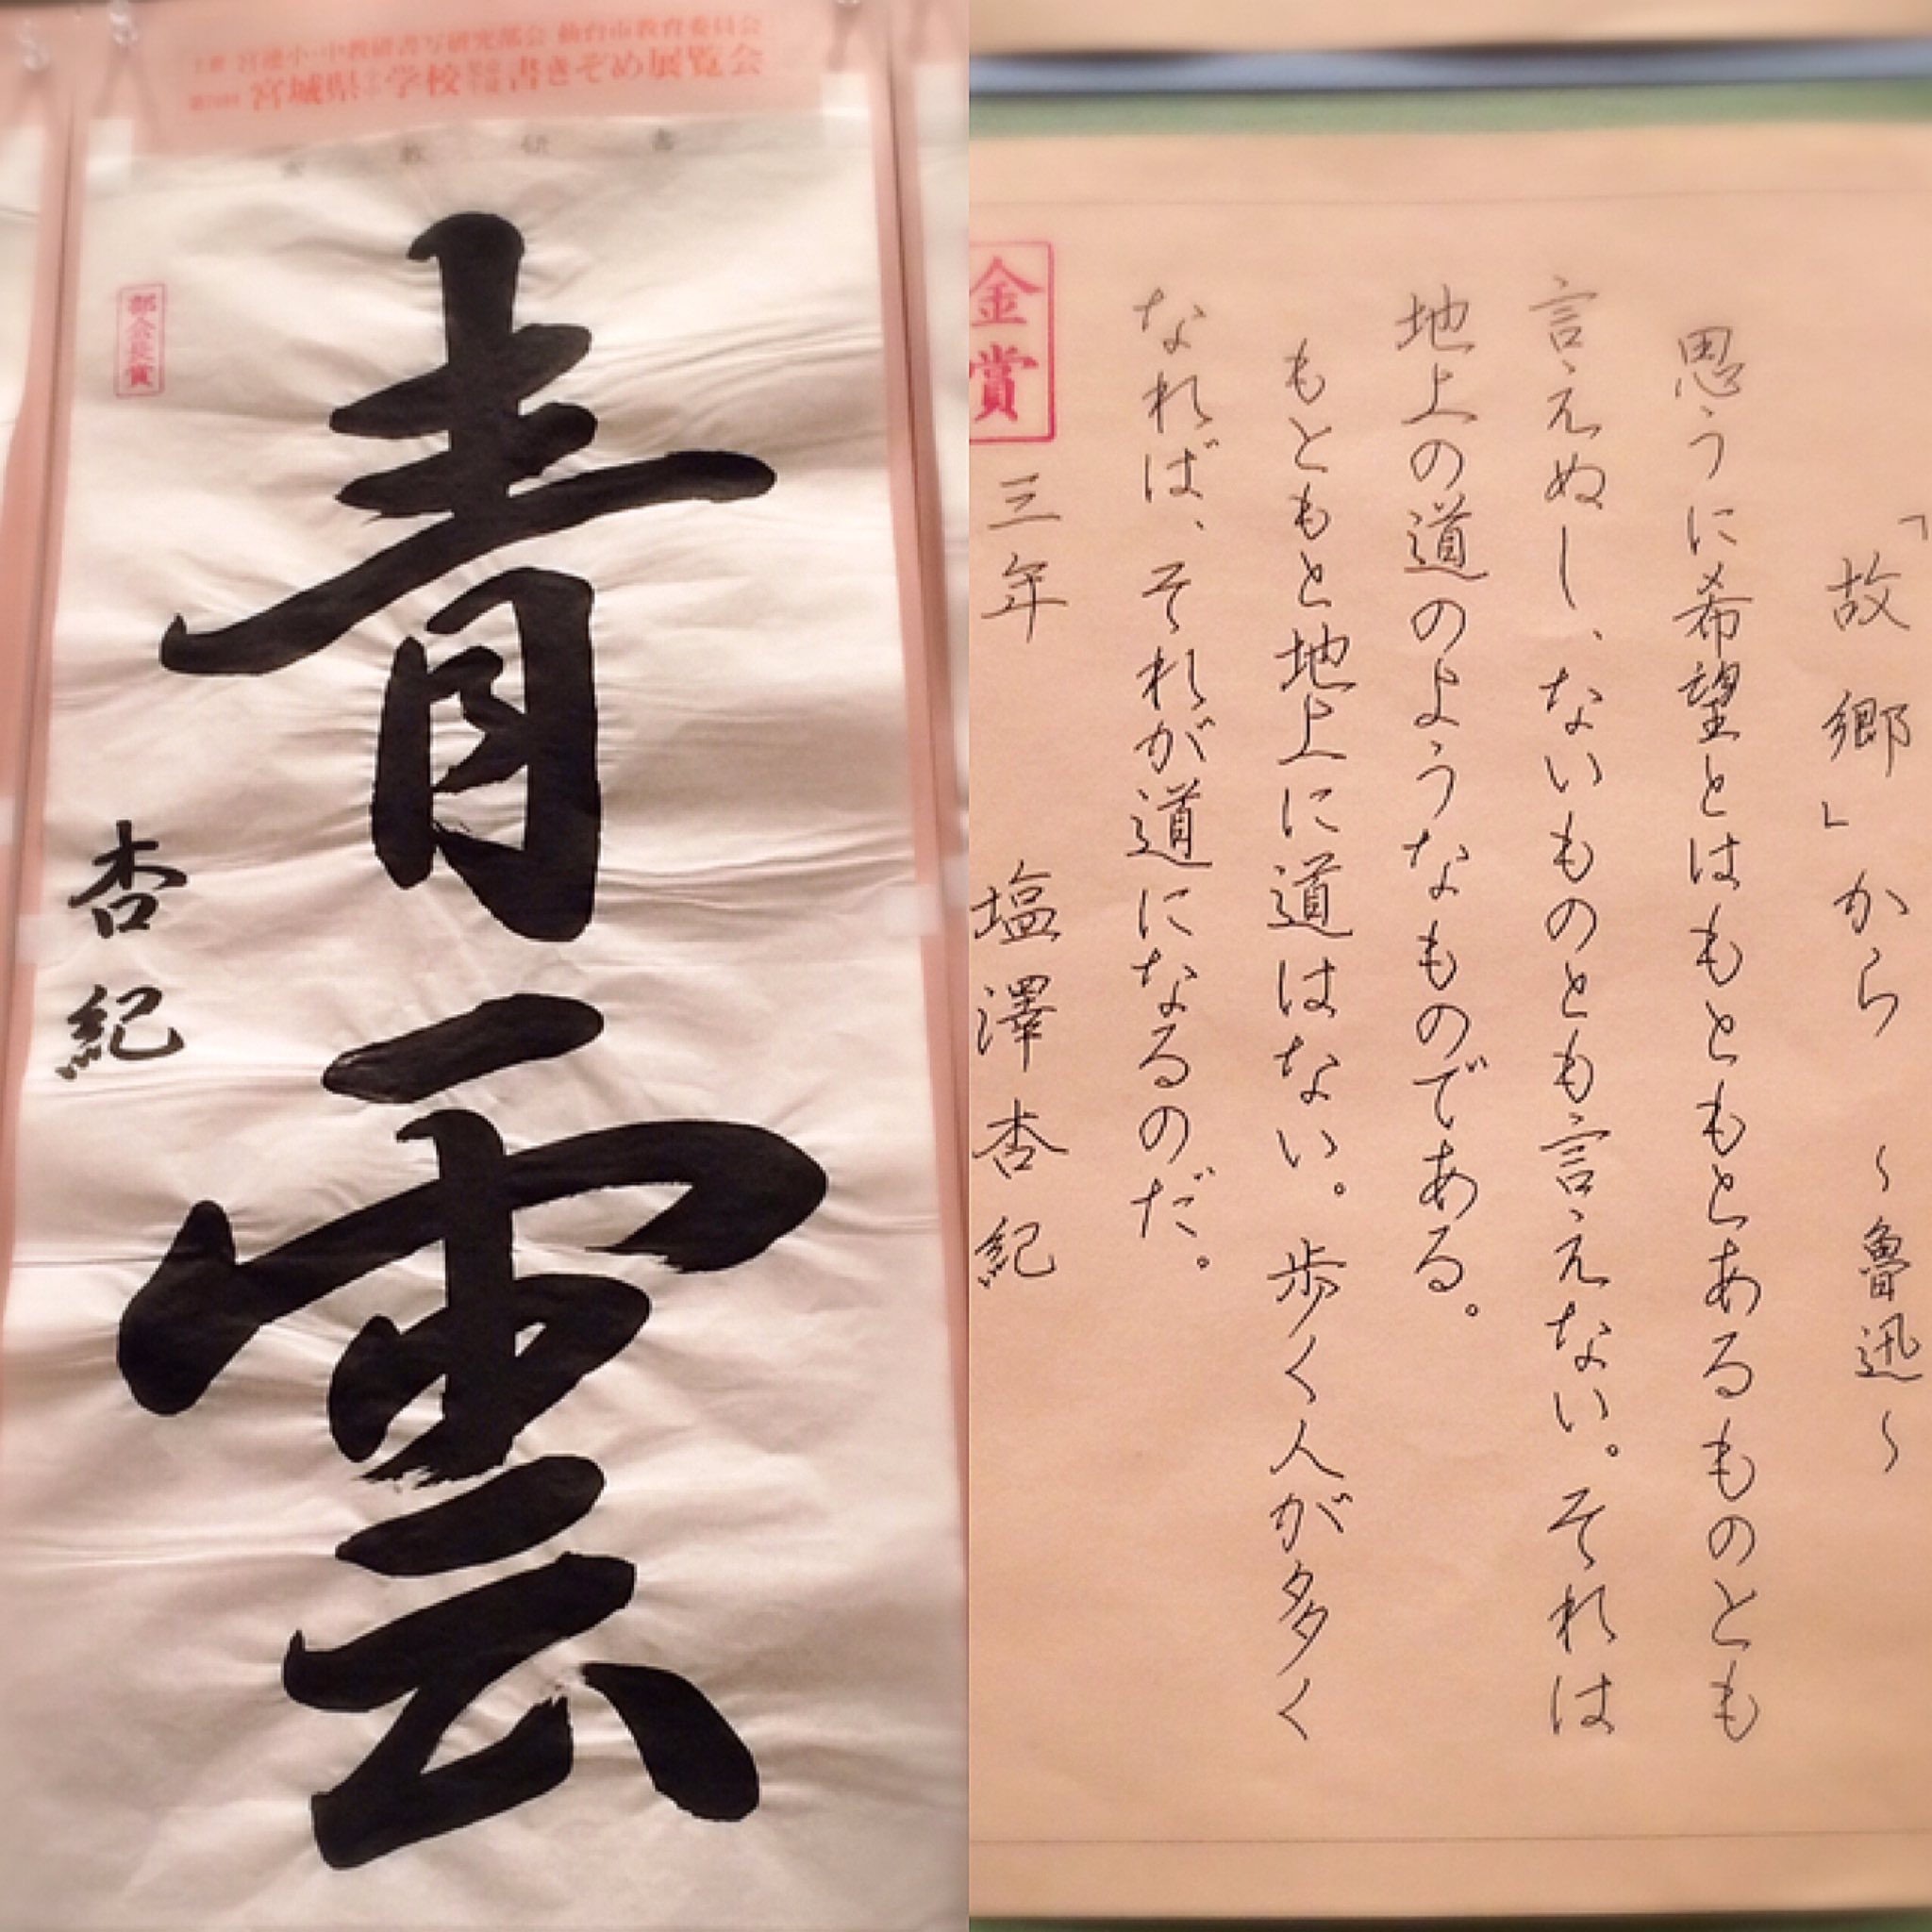 宮城県小・中学校書きぞめ展覧会
部会長賞
青雲
杏紀
「故郷」から 〜魯迅〜
思うに希望とはもともとあるものとも
言えぬし、ないものとも言えない。それは
地上の道のようなものである。
もともと地上に道はない。歩く人が多く
なれば、それが道になるのだ。
金賞
三年 塩澤杏紀